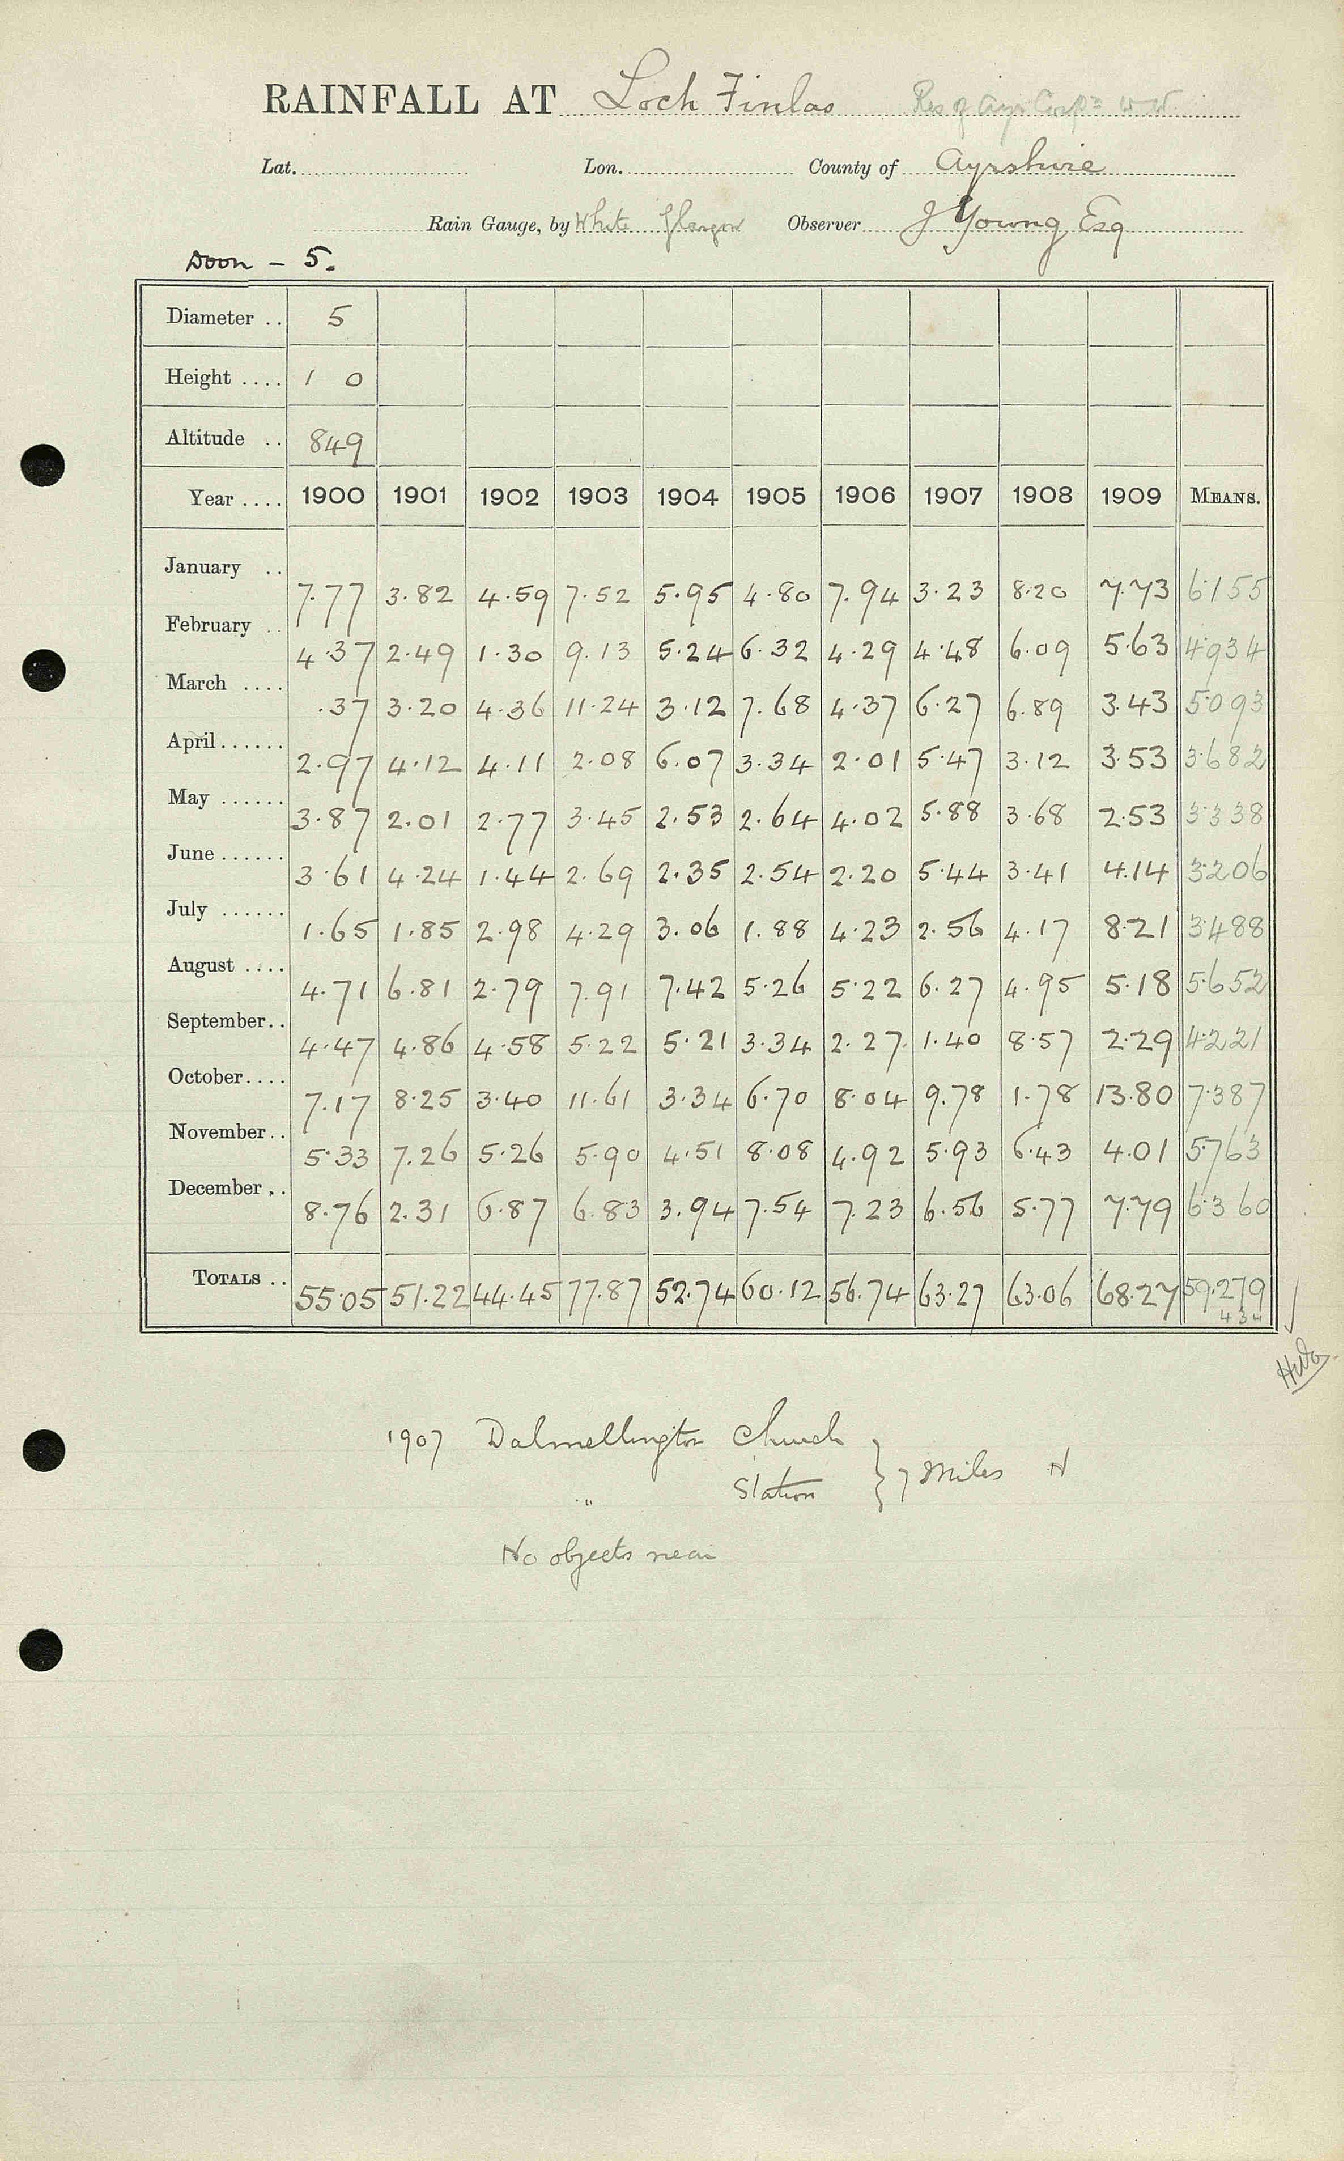 RAINFALL AT Loch Finlas Res of Ayr Corpn W.W.
Lat. Lon. County of Ayrshire
Rain Gauge, by White Glasgow Observer J Young Esq
Doon - 5.
Diameter .. 5
Height .... 1 0
Altitude .. 849
Year .... 1900 1901 1902 1903 1904 1905 1906 1907 1908 1909 MEANS.
January .. 7.77 3.82 4.59 7.52 5.95 4.80 7.94 3.23 8.20 7.73 6.155
February .. 4.37 2.49 1.30 9.13 5.24 6.32 4.29 4.48 6.09 5.63 4.934
March .... .37 3.20 4.36 11.24 3.12 7.68 4.37 6.27 6.89 3.43 5.093
April ...... 2.97 4.12 4.11 2.08 6.07 3.34 2.01 5.47 3.12 3.53 3.682
May ...... 3.87 2.01 2.77 3.45 2.53 2.64 4.02 5.88 3.68 2.53 3.338
June ...... 3.61 4.24 1.44 2.69 2.35 2.54 2.20 5.44 3.41 4.14 3.206
July ...... 1.65 1.85 2.98 4.29 3.06 1.88 4.23 2.56 4.17 8.21 3.488
August .... 4.71 6.81 2.79 7.91 7.42 5.26 5.22 6.27 4.95 5.18 5.652
September.. 4.47 4.86 4.58 5.22 5.21 3.34 2.27 1.40 8.57 2.29 4.221
October.... 7.17 8.25 3.40 11.61 3.34 6.70 8.04 9.78 1.78 13.80 7.387
November.. 5.33 7.26 5.26 5.90 4.51 8.08 4.92 5.93 6.43 4.01 5.763
December .. 8.76 2.31 6.87 6.83 3.94 7.54 7.23 6.56 5.77 7.79 6.360
TOTALS .. 55.05 51.22 44.45 77.87 52.74 60.12 56.74 63.27 63.06 68.27 59.279
1907 Dalmellington Church
" Station } 7 Miles N
No objects near